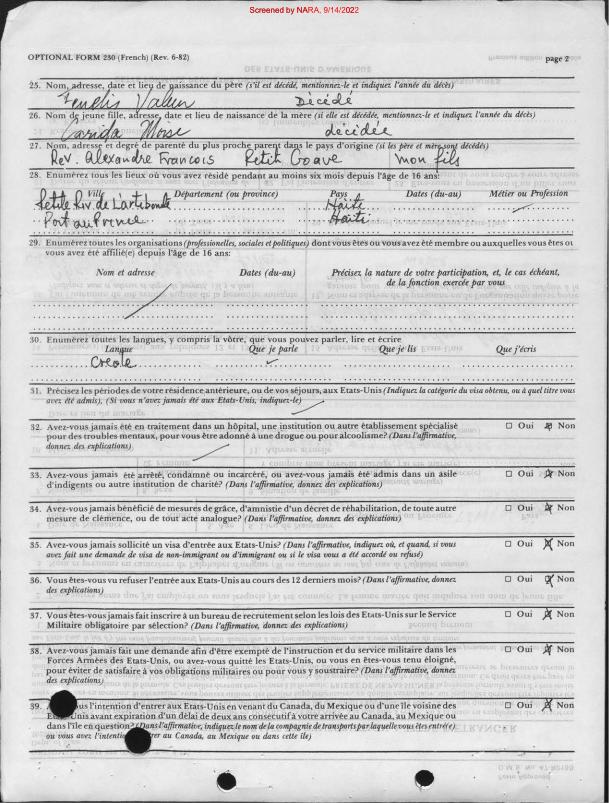 Screened by NARA, 9/14/2022
OPTIONAL FORM 230 (French) (Rev. 6-82)
page 2
25. Nom, adresse, date et lieu de naissance du père (s'il est décédé, mentionnez-le et indiquez l'année du décès)
Valeur Décédé
26. Nom de jeune fille, adresse, date et lieu de naissance de la mère (si elle est décédée, mentionnez-le et indiquez l'année du décès)
décédée
27. Nom, adresse et degré de parenté du plus proche parent dans le pays d'origine (si les père et mère sont décédés)
Rev. Alexandre Francois Petit Goave mon fils
28. Enumérez tous les lieux où vous avez résidé pendant au moins six mois depuis l'âge de 16 ans:
Ville Département (ou province) Pays Dates (du-au) Métier ou Profession
Petite Riv. de L'artibonite Haïti
Port au Prince Haïti
29. Enumérez toutes les organisations (professionelles, sociales et politiques) dont vous êtes ou vous avez été membre ou auxquelles vous êtes ou
vous avez été affilié(e) depuis l'âge de 16 ans:
Nom et adresse Dates (du-au) Précisez la nature de votre participation, et, le cas échéant,
de la fonction exercée par vous
30. Enumérez toutes les langues, y compris la vôtre, que vous pouvez parler, lire et écrire
Langue Que je parle Que je lis Que j'écris
Creole ✓
31. Précisez les périodes de votre résidence antérieure, ou de vos séjours, aux Etats-Unis (Indiquez la catégorie du visa obtenu, ou à quel titre vous
avez été admis); (Si vous n'avez jamais été aux Etats-Unis, indiquez-le)
32. Avez-vous jamais été en traitement dans un hôpital, une institution ou autre établissement spécialisé
pour des troubles mentaux, pour vous être adonné à une drogue ou pour alcoolisme? (Dans l'affirmative,
donnez des explications)
☐ Oui ☒ Non
33. Avez-vous jamais été arrêté, condamné ou incarcéré, ou avez-vous jamais été admis dans un asile
d'indigents ou autre institution de charité? (Dans l'affirmative, donnez des explications)
☐ Oui ☒ Non
34. Avez-vous jamais bénéficié de mesures de grâce, d'amnistie d'un décret de réhabilitation, de toute autre
mesure de clémence, ou de tout acte analogue? (Dans l'affirmative, donnez des explications)
☐ Oui ☒ Non
35. Avez-vous jamais sollicité un visa d'entrée aux Etats-Unis? (Dans l'affirmative, indiquez où, et quand, si vous
avez fait une demande de visa de non-immigrant ou d'immigrant ou si le visa vous a été accordé ou refusé)
☐ Oui ☒ Non
36. Vous êtes-vous vu refuser l'entrée aux Etats-Unis au cours des 12 derniers mois? (Dans l'affirmative, donnez
des explications)
☐ Oui ☒ Non
37. Vous êtes-vous jamais fait inscrire à un bureau de recrutement selon les lois des Etats-Unis sur le Service
Militaire obligatoire par sélection? (Dans l'affirmative, donnez des explications)
☐ Oui ☒ Non
38. Avez-vous jamais fait une demande afin d'être exempté de l'instruction et du service militaire dans les
Forces Armées des Etats-Unis, ou avez-vous quitté les Etats-Unis, ou vous en êtes-vous tenu éloigné,
pour éviter de satisfaire à vos obligations militaires ou pour vous y soustraire? (Dans l'affirmative, donnez des
explications)
☐ Oui ☒ Non
39. l'intention d'entrer aux Etats-Unis en venant du Canada, du Mexique ou d'une île voisine des
avant expiration d'un délai de deux ans consécutif à votre arrivée au Canada, au Mexique ou
dans l'île en question? (Dans l'affirmative, indiquez le nom de la compagnie de transports par laquelle vous êtes entré(e)
ou vous avez au Canada, au Mexique ou dans cette île)
☐ Oui ☒ Non